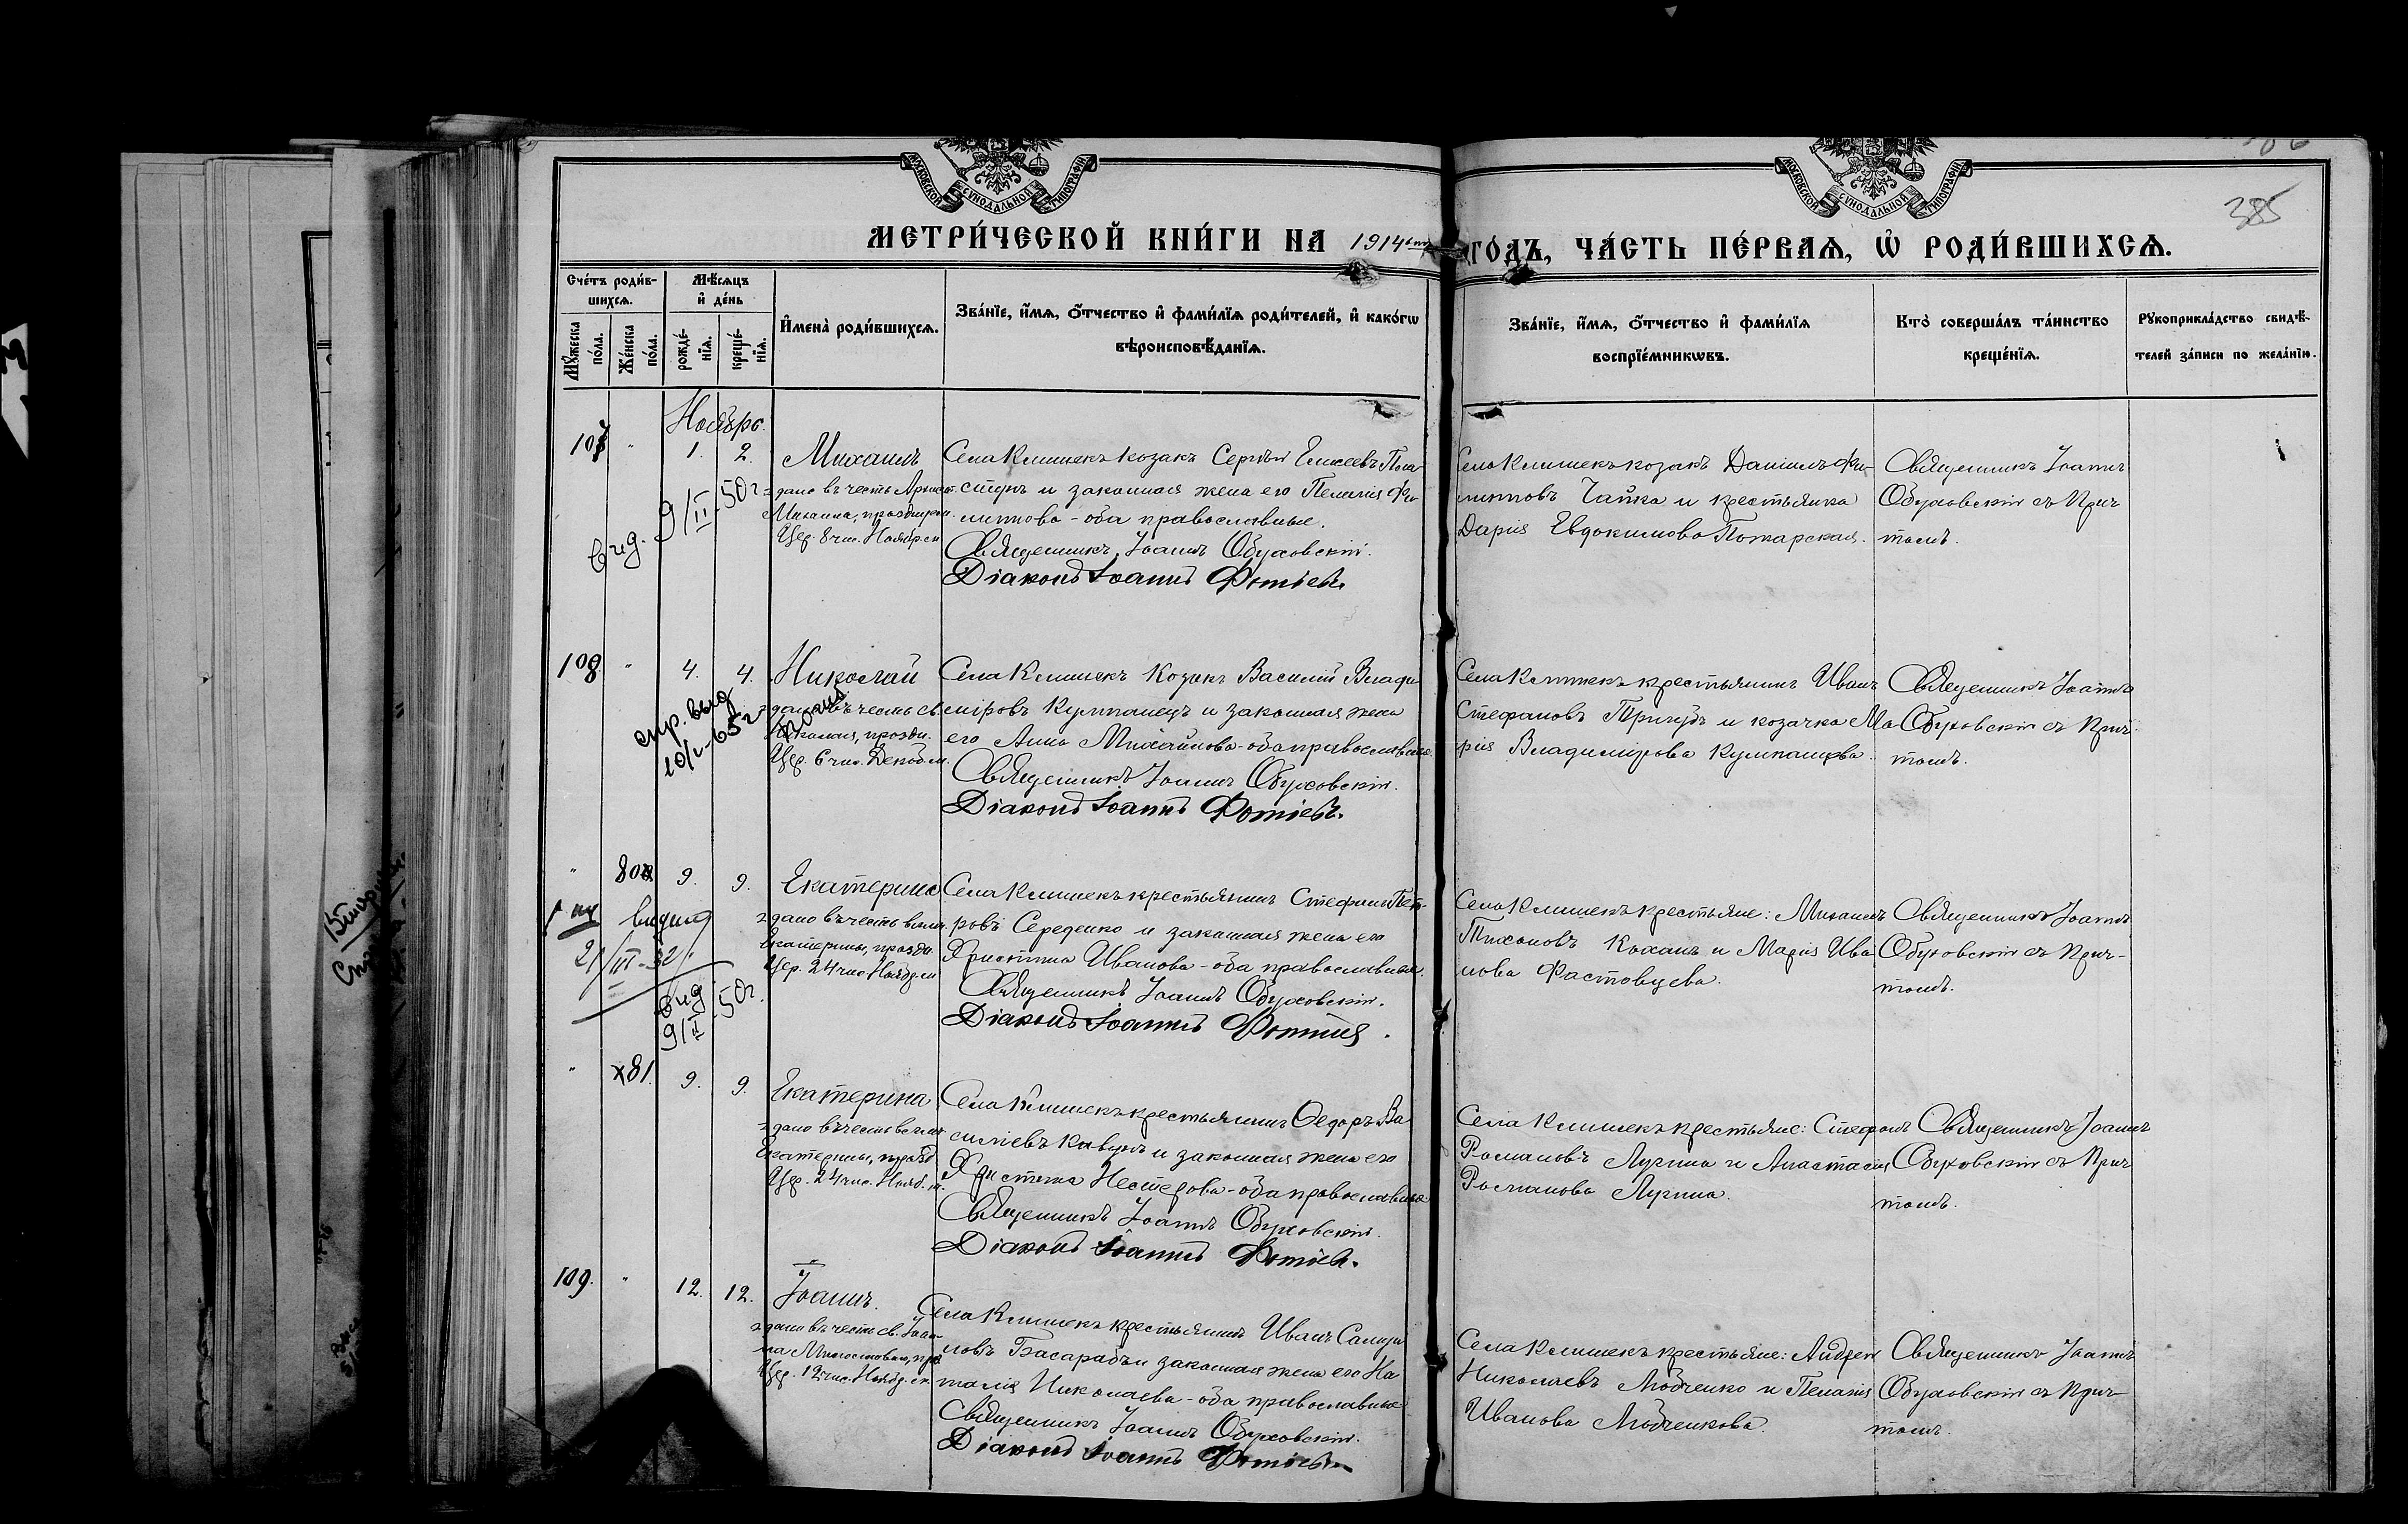 МОСКОВСКОЙ СѴНОДАЛЬНОЙ ТИПОГРАФІИ
МОСКОВСКОЙ СѴНОДАЛЬНОЙ ТИПОГРАФІИ
385
МЕТРИ́ЧЕСКОЙ КНИ́ГИ НА 1914 ГО́ДЪ, ЧА́СТЬ ПЕ́РВАѦ, Ѡ҆ РОДИ́ВШИХСѦ.
Сче́тъ роди́в-
шихсѧ.
Мꙋ́жеска
по́ла.
Же́нска
по́ла.
Мѣ́сѧцъ
и҆ де́нь
рожде́-
нїѧ.
креще́-
нїѧ.
И҆мена̀ роди́вшихсѧ.
Зва́нїе, и҆́мѧ, о҆́тчество и҆ фами́лїѧ роди́телей, и҆ како́гѡ
вѣроисповѣ́данїѧ.
Зва́нїе, и҆́мѧ, о҆́тчество и҆ фами́лїѧ
воспрїе́мникѡвъ.
Кто̀ соверша́лъ та́инство
креще́нїѧ.
Рꙋкоприкла́дство свидѣ́-
телей за́писи по жела́нїю.
Ноябрь.
107 " 1. 2.
Михаилъ
дано въ честь Архист.
Михаила, праздн.
Цер. 8 чис. Ноябр. м
вид. 9/II 50 г
Села Клишекъ козакъ Сергѣй Елисеевъ
и законная жена его Пелагія Фи-
липпова - оба православные.
Священникъ Іоаннъ Обуховскій.
Діаконъ Іоаннъ Фотіевъ.
Села Клишекъ козакъ Даніилъ Фи-
липповъ Чайка и крестьянка
Дарія Евдокимова Пожарская.
Священникъ Іоаннъ
Обуховскій съ прич
томъ.
108 " 4. 4.
Николай
дано въ честь св.
Николая, праздн.
Цер. 6 чис. Декаб. м.
спр. выд
10/V-65 г
Села Клишекъ Козакъ Василій Влади
міровъ Кулпанецъ и законная жена
его Анна Михайлова - оба православные.
Священникъ Іоаннъ Обуховскій.
Діаконъ Іоаннъ Фотіевъ.
Села Клишекъ крестьянинъ Иванъ
Стефановъ Пригубъ и козачка Ма
рія Владимірова
Священникъ Іоаннъ
Обуховскій съ прич
томъ.
" 80 9. 9.
Екатерина
дано въ честь велик.
Екатерины, праздн.
Цер. 24 чис. Ноябр. м
видно
21/III-32
вид 9/II 50 г.
Села Клишекъ крестьянинъ Стефанъ Пет-
ровъ Середенко и законная жена его
Христина Иванова - оба православные.
Священникъ Іоаннъ Обуховскій.
Діаконъ Іоаннъ
Села Клишекъ крестьяне: Михаилъ
Тихоновъ Коханъ и Марія Ива
нова Фастовцева.
Священникъ Іоаннъ
Обуховскій съ прич-
томъ.
" 81. 9. 9.
Екатерина
дано въ честь велик
Екатерины, празд
Цер. 24 чис. Нояб. м.
Села Клишекъ крестьянинъ Ѳедоръ Ва
силіевъ Кавунъ и законная жена его
Христина Нестерова - оба православные
Священникъ Іоаннъ Обуховскій.
Діаконъ Іоаннъ Фотіевъ.
Села Клишекъ крестьяне: Стефанъ
Романовъ Лугина и Анастасія
Романова Лугина.
Священникъ Іоаннъ
Обуховскій съ прич
томъ.
109. " 12. 12.
Іоаннъ.
дано въ честь св. Іоан
на Милостиваго, пра
Цер. 12 чис. Ноябр. м.
Села Клишекъ крестьянинъ Иванъ
Басарабъ и законная жена его На
талія Николаева - оба православные
Священникъ Іоаннъ Обуховскій.
Діаконъ Іоаннъ Фотіевъ.
Села Клишекъ крестьяне: Андрей
Николаевъ Любченко и Пелагія
Иванова Любченкова.
Священникъ Іоаннъ
Обуховскій съ прич-
томъ.